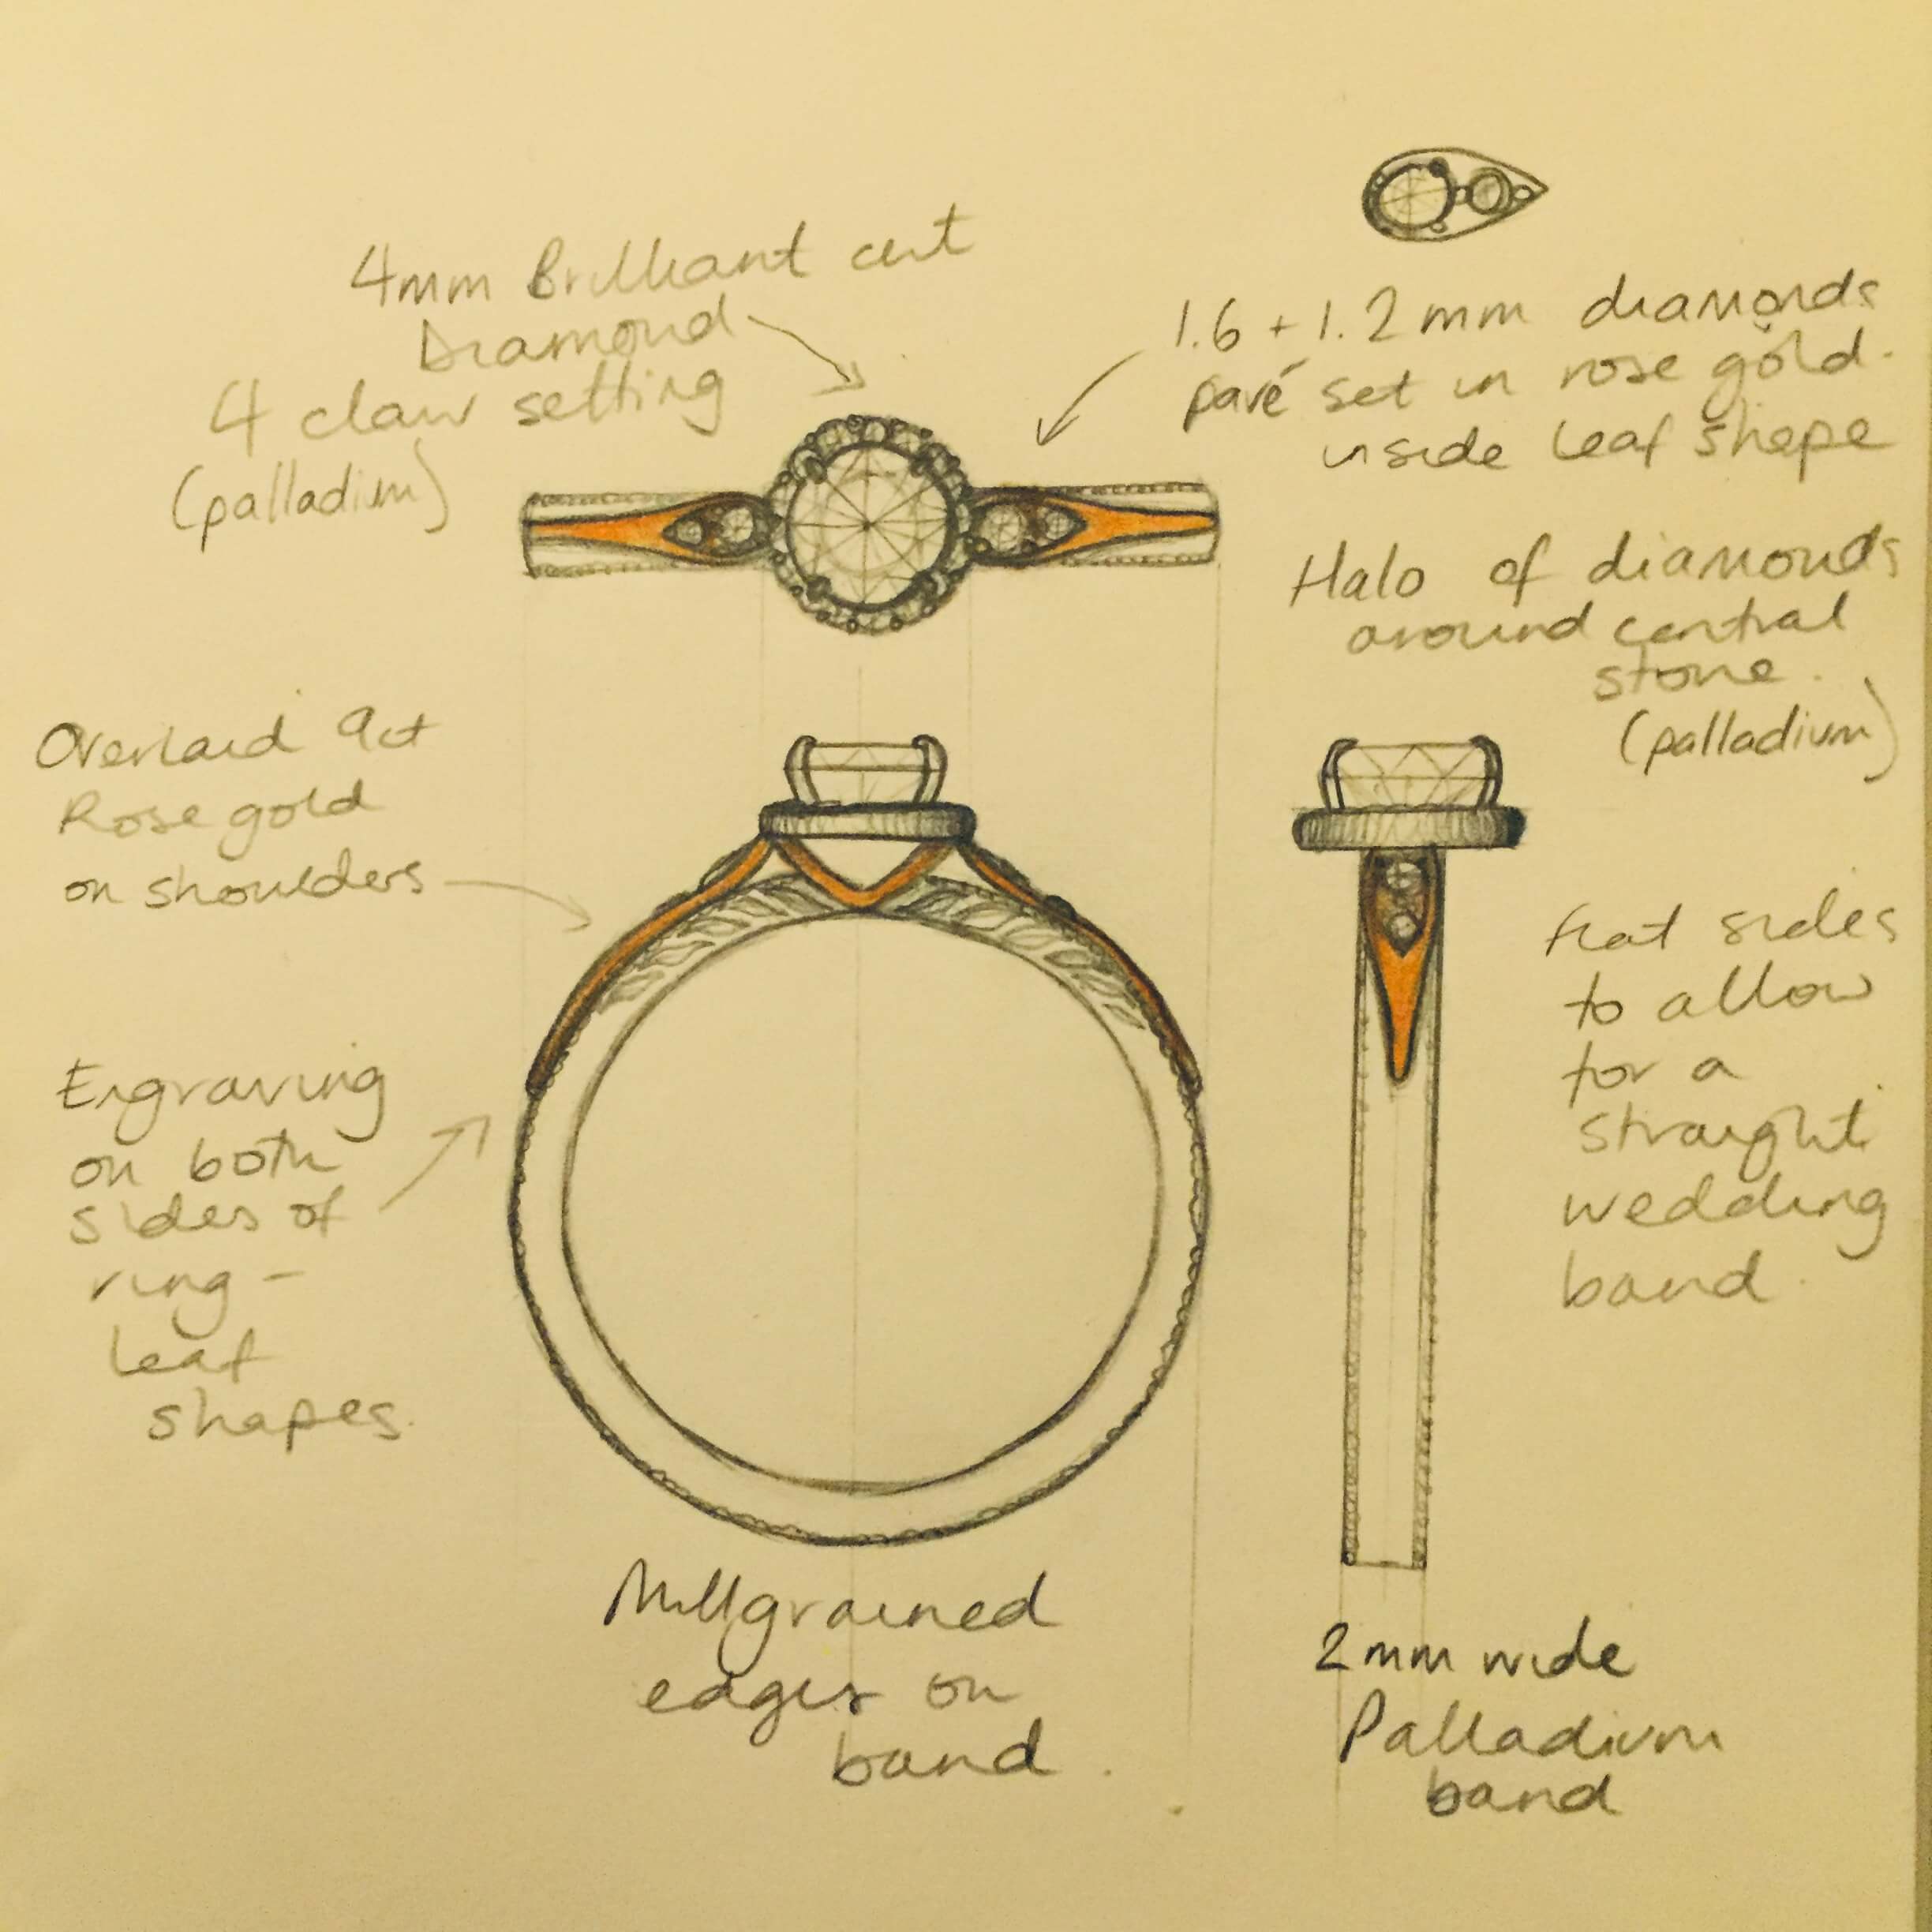 4mm Brilliant cut
Diamond
4 claw setting
(palladium)
1.6 + 1.2mm diamonds
pavé set in rose gold.
inside leaf shape
Halo of diamonds
around central
stone.
(palladium)
Overlaid 9ct
Rose gold
on shoulders
Engraving
on both
sides of
ring -
leaf
shapes.
flat sides
to allow
for a
straight
wedding
band.
Millgrained
edges on
band.
2mm wide
Palladium
band